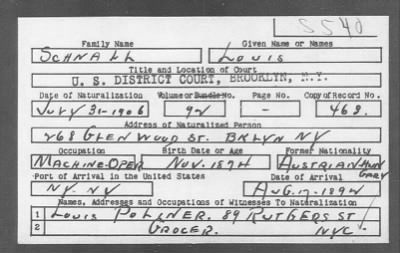 S540
Family Name Given Name or Names
SCHNALL LOUIS
Title and Location of Court
U. S. DISTRICT COURT, BROOKLYN, N.Y.
Date of Naturalization Volume or Bundle No. Page No. Copy of Record No.
JULY 31-1906 92 - 468.
Address of Naturalized Person
268 GLENWOOD ST. BKLYN NY
Occupation Birth Date or Age Former Nationality
MACHINE OPER NOV. 1874 AUSTRIAN HUNGARY
Port of Arrival in the United States Date of Arrival
NY. NY AUG. 17. 1894
Names, Addresses and Occupations of Witnesses To Naturalization
1 LOUIS POLLNER. 89 RUTGERS ST
2 GROCER. NYC.